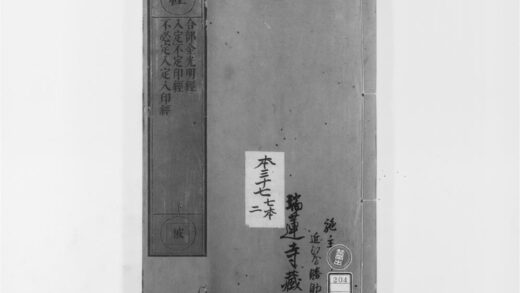 合部金光明經
入定不定印經
不必定入定入印經
下
本三十七 七本
二
施主
瑞蓮寺藏
204